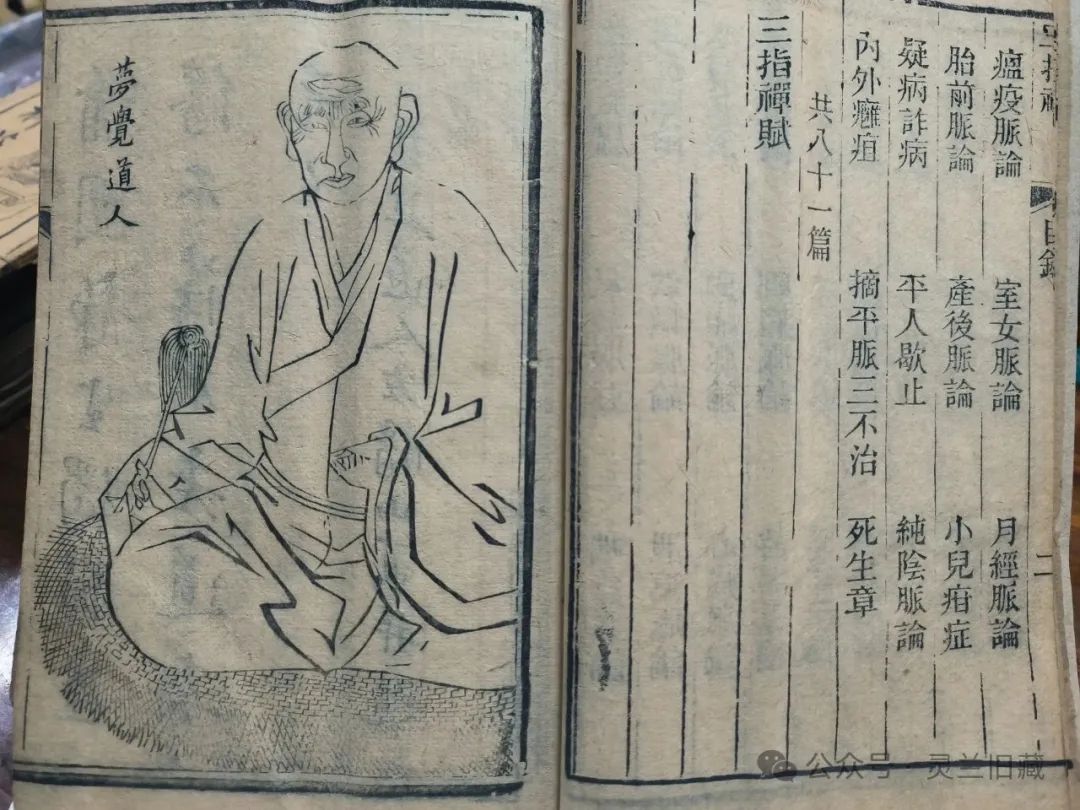 三指禪 目錄 二
瘟疫脈論 室女脈論 月經脈論
胎前脈論 產後脈論 小兒疳症
疑病詐病 平人歇止 純陰脈論
內外癰疽 摘平脈三不治 死生章
共八十一篇
三指禪賦
夢覺道人
公众号 灵兰旧藏